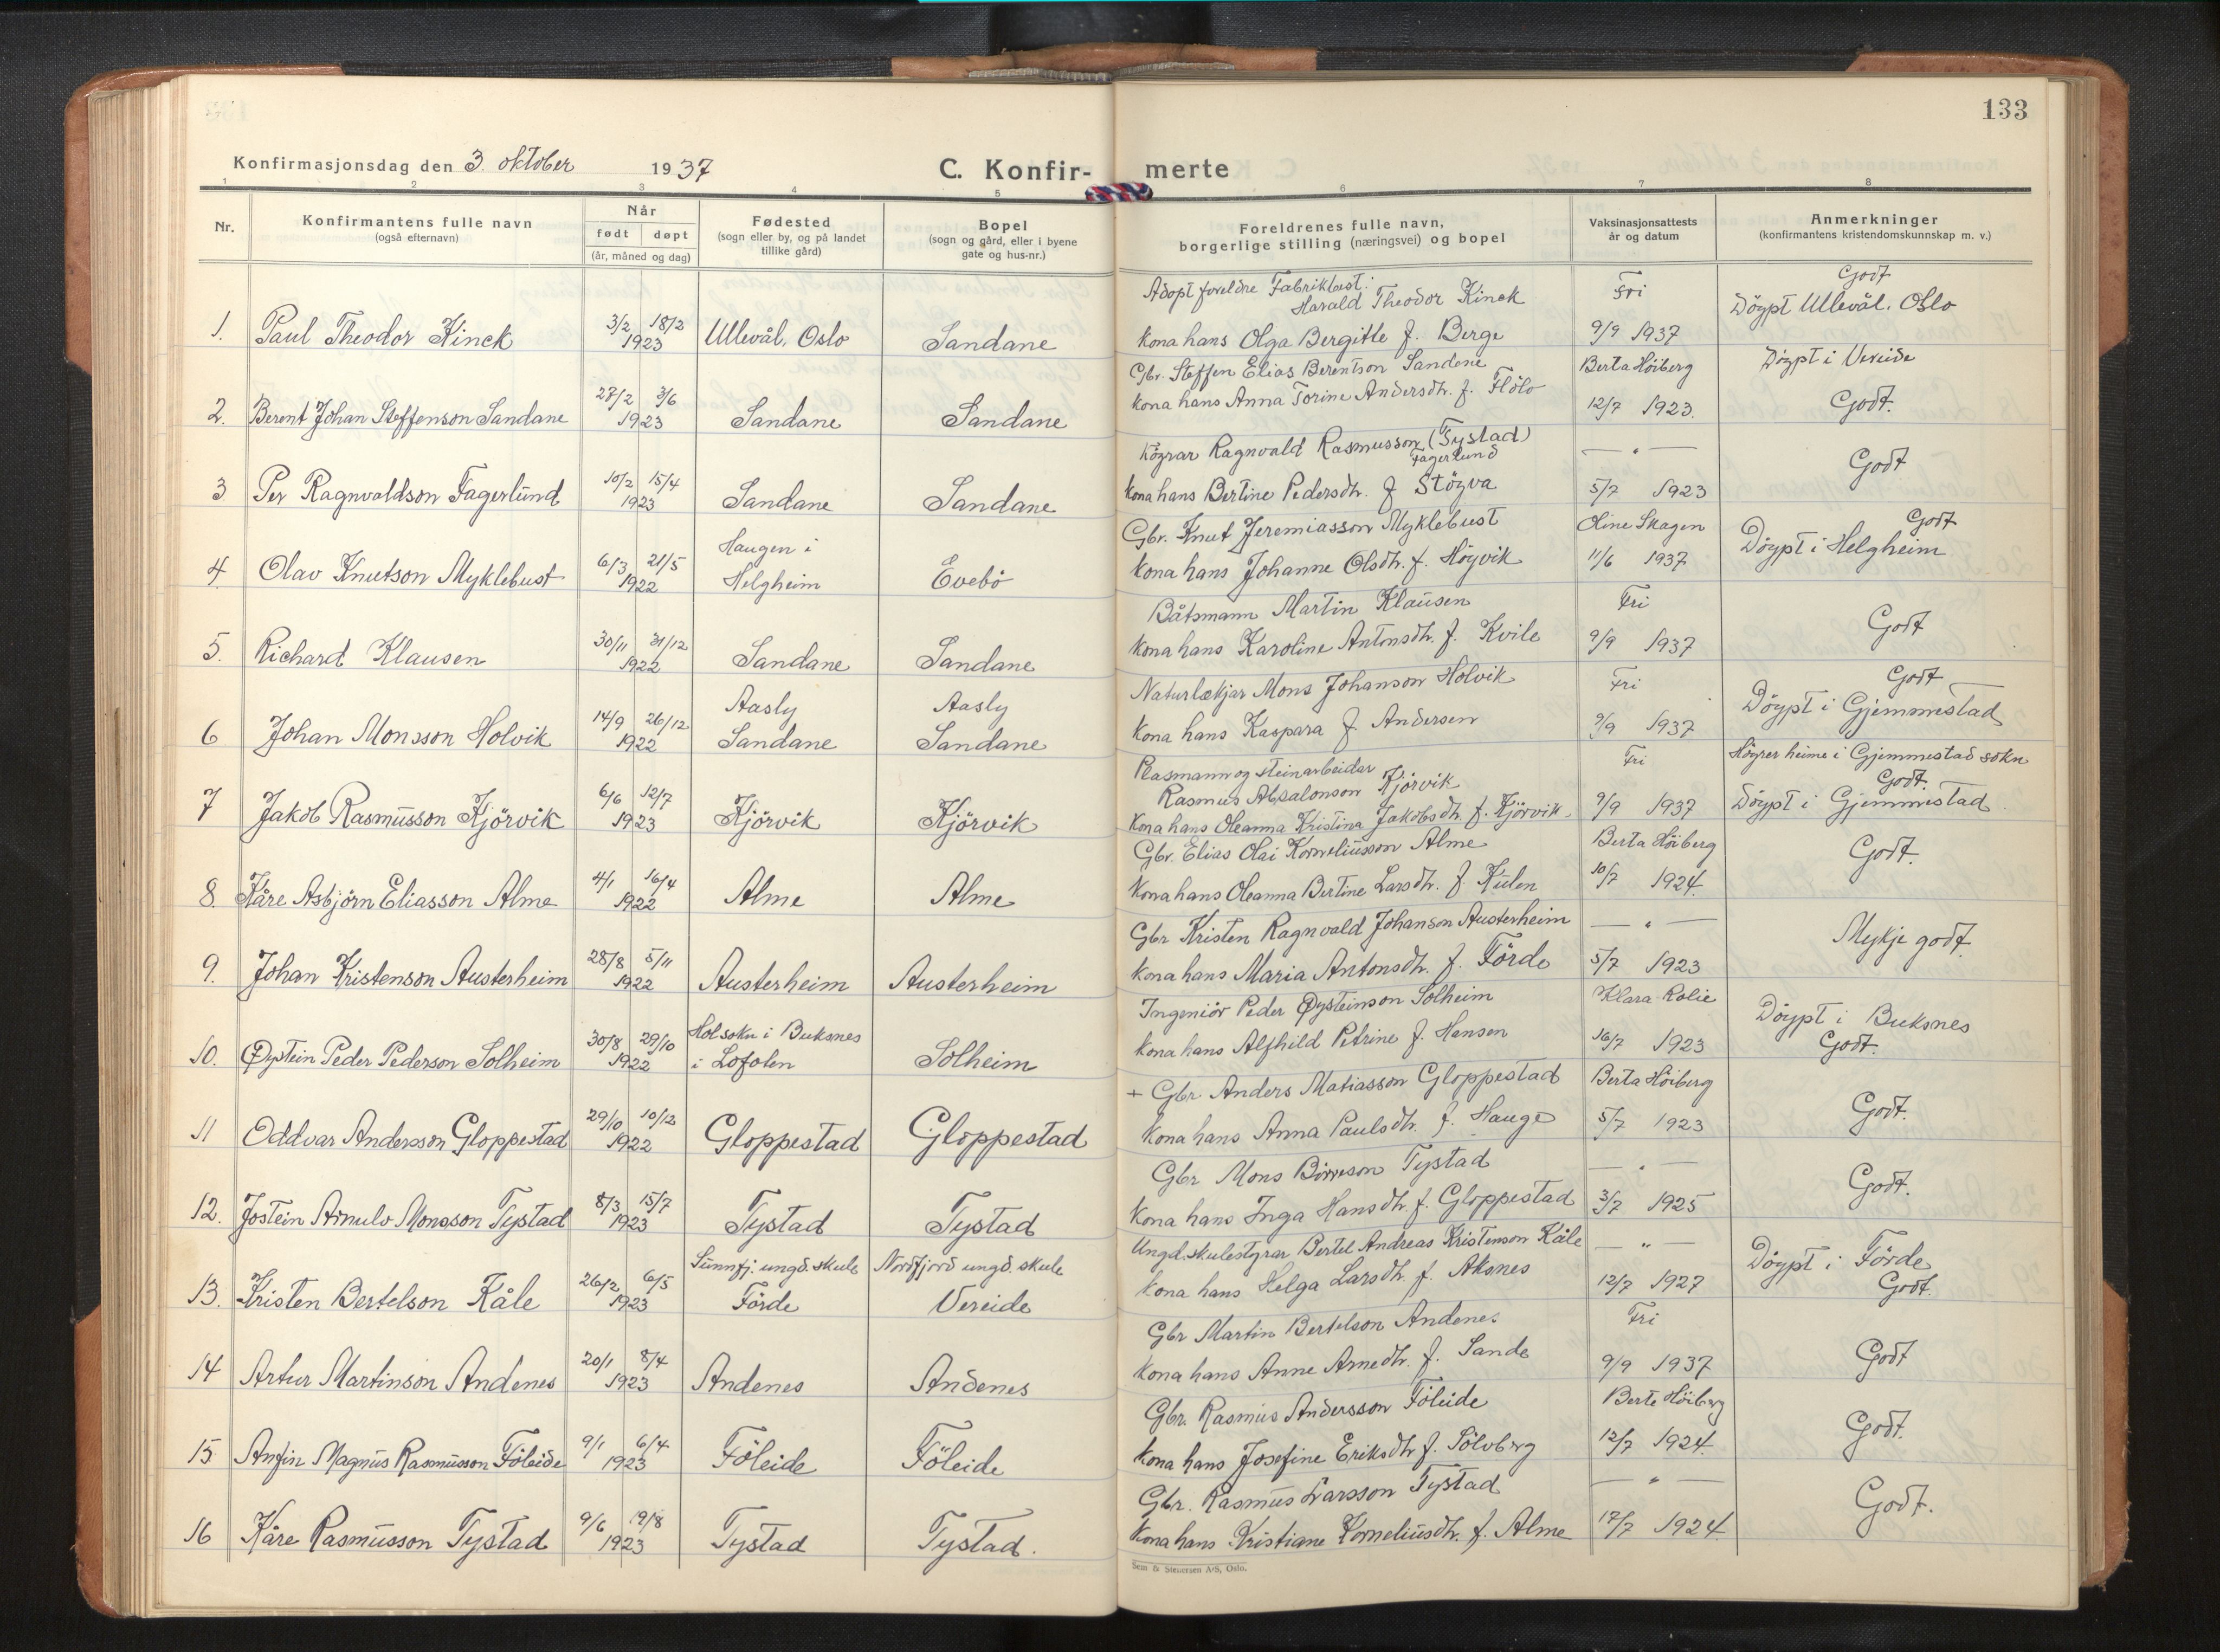 133
Konfirmasjonsdag den 3. oktober 1937
C. Konfir- merte
1 2 3 4 5 6 7 8
Nr.
Konfirmantens fulle navn
(også efternavn)
Når
født døpt
(år, måned og dag)
Fødested
(sogn eller by, og på landet
tillike gård)
Bopel
(sogn og gård, eller i byene
gate og hus-nr.)
Foreldrenes fulle navn,
borgerlige stilling (næringsvei) og bopel
Vaksinasjonsattests
år og datum
Anmerkninger
(konfirmantens kristendomskunnskap m. v.)
Adopt foreldre Fabrikbest. Fri Godt
Harald Theodor Kinck Döypt Ullevål. Oslo
1. Paul Theodor Kinck 3/2 18/2 1923 Ullevål, Oslo Sandane Kona hans Olga Bergitte f. Berge 9/9 1937
Gbr. Steffen Elias Berentson Sandene Berta Höiberg Döypt i Vereide
2. Berent Johan Steffenson Sandane 27/2 3/6 1923 Sandane Sandane Kona hans Anna Torine Andersdh. f. Flölo 12/7 1923. Godt.
Ragnvald Rasmusson (Tystad) — " — Godt
Fagerlund
3 Per Ragnvaldson Fagerlund 10/2 15/4 1923 Sandane Sandane Kona hans Bertine Pedersdh. f Stögva 5/7 1923
Gbr. Knut Jeremiasson Myklebust Oline Skagen Godt
4. Olav Knutson Myklebust 6/3 21/5 1922 Haugen i Helgheim Evebö Kona hans Johanne Olsdh. f. Höyvik 11/6 1937 Döypt i Helgheim
Båtsmann Martin Klausen Fri Godt
5. Richard Klausen 30/11 31/12 1922 Sandane Sandane Kona hans Karoline Antonsdh. f. Kvile 9/9 1937
Naturlækjar Mons Johanson Holvik Fri Godt
6 Johan Monsson Holvik 14/9 26/12 1922 Aasly Sandane Aasly Sandane Kona hans Kaspara f Andersen 9/9 1937 Döypt i Gjemmestad
Plasmann og steinarbeidar Fri Höyrer heime i Gjemmestad sokn
Rasmus Absalonson Kjörvik Godt.
7 Jakob Rasmusson Kjörvik 6/6 12/7 1923 Kjörvik Kjörvik Kona hans Oleanna Kristina Jakobsdh. f. Kjörvik. 9/9 1937 Döypt i Gjemmestad.
Gbr. Elias Olai Korneliusson Alme Berta Höiberg Godt.
8. Kåre Asbjörn Eliasson Alme 4/1 16/4 1922 Alme Alme Kona hans Oleanna Bertine Larsdh. f. Kulen 10/7 1924.
Gbr Kristen Ragnvald Johanson Austerheim — " — Mykje godt.
9. Johan Kristenson Austerheim 28/8 5/11 1922 Austerheim Austerheim Kona hans Maria Antonsdh. f. Förde 5/7 1923
Ingeniör Peder Øysteinson Solheim Klara Rolie Döypt i Buksnes
10. Øystein Peder Pederson Solheim 30/8 29/10 1922 Hol sokn i Buksnes i Lofoten Solheim Kona hans Alfhild Petrine f. Hansen 16/7 1923 Godt.
+ Gbr. Anders Matiasson Gloppestad Berta Höiberg Godt.
11 Oddvar Andersson Gloppestad 29/10 10/12 1922 Gloppestad Gloppestad Kona hans Anna Paulsdh. f. Hauge 5/7 1923
Gbr Mons Börreson Tystad — " — Godt.
12. Jostein Arnulv Monsson Tystad 8/3 15/7 1923 Tystad Tystad Kona hans Inga Hansdh. f. Gloppestad 3/7 1925
Ungd.skulestyrar Bertel Andreas Kristenson Kåle — " — Döypt i Förde
13. Kristen Bertelson Kåle 26/2 6/5 1923 Sunnfj. ungd. skule Förde Nordfjord ungd. skule Vereide Kona hans Helga Larsdh. f. Aksnes 12/7 1927 Godt.
Gbr Martin Bertelson Andenes Fri Godt
14 Artur Martinson Andenes 20/1 8/4 1923 Andenes Andenes Kona hans Anne Arnedh. f. Sande 9/9 1937
Gbr. Rasmus Andersson Föleide Berte Höiberg Godt.
15 Anfin Magnus Rasmusson Föleide 9/1 6/4 1923 Föleide Föleide Kona hans Josefine Eriksdh f. Sölvberg 12/7 1924.
Gbr. Rasmus Larsson Tystad — " — Godt.
16 Kåre Rasmusson Tystad 9/6 19/8 1923 Tystad Tystad. Kona hans Kristiane Korneliusdh. f. Alme 17/7 1924
Sem & Stenersen A/S, Oslo.